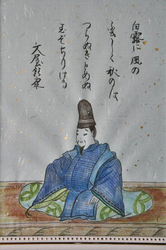 白露に 風の
吹きしく 秋の野は
つらぬきとめぬ
玉ぞちりける
文屋朝康